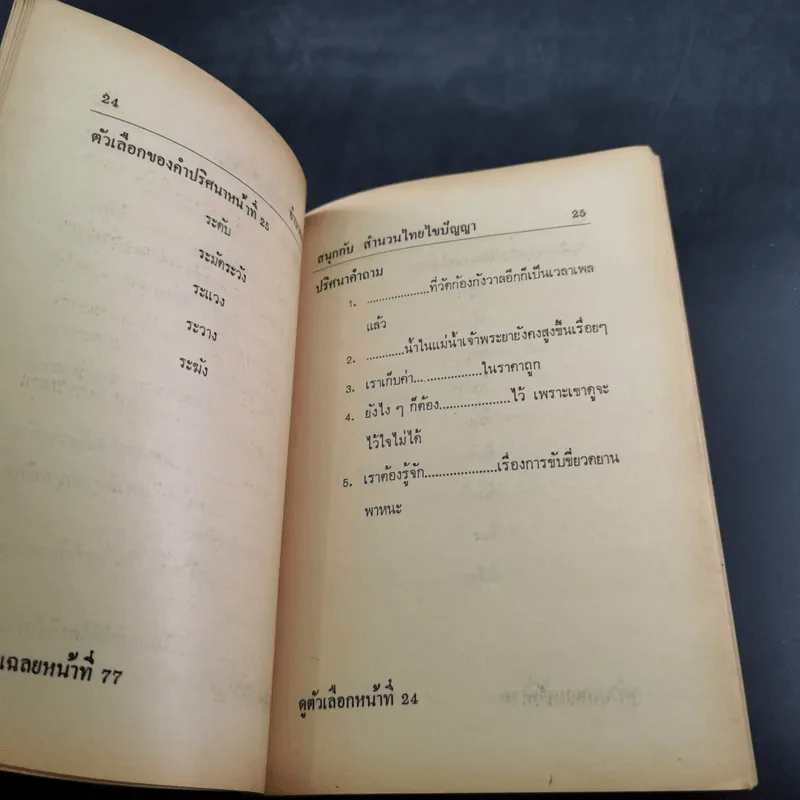 24
ตัวเลือกของคำปริศนาหน้าที่ 25
ระดับ
ระมัดระวัง
ระแวง
ระวาง
ระฆัง
เฉลยหน้าที่ 77
สนุกกับ สำนวนไทยไขปัญญา 25
ปริศนาคำถาม
1. ...................ที่วัดก้องกังวาลอีกก็เป็นเวลาเพล
แล้ว
2. ............น้ำในแม่น้ำเจ้าพระยายังคงสูงขึ้นเรื่อยๆ
3. เราเก็บค่า... ............ในราคาถูก
4. ยังไง ๆ ก็ต้อง..................ไว้ เพราะเขาดูจะ
ไว้ใจไม่ได้
5. เราต้องรู้จัก...................เรื่องการขับขี่ยวดยาน
พาหนะ
ดูตัวเลือกหน้าที่ 24